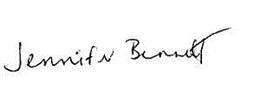 Jennifer Bennett